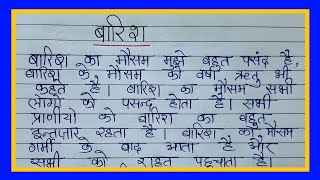 बारिश
बारिश का मौसम मुझे बहुत पसंद है,
बारिश के मौसम को वर्षा ऋतु भी
कहते है। बारिश का मौसम सभी
लोगो को पसन्द होता है। सभी
प्राणीयो को बारिश का बहुत
इन्तज़ार रहता है। बारिश का मौसम
गर्मी के बाद आता है और
सभी को राहत पहुचाता है।